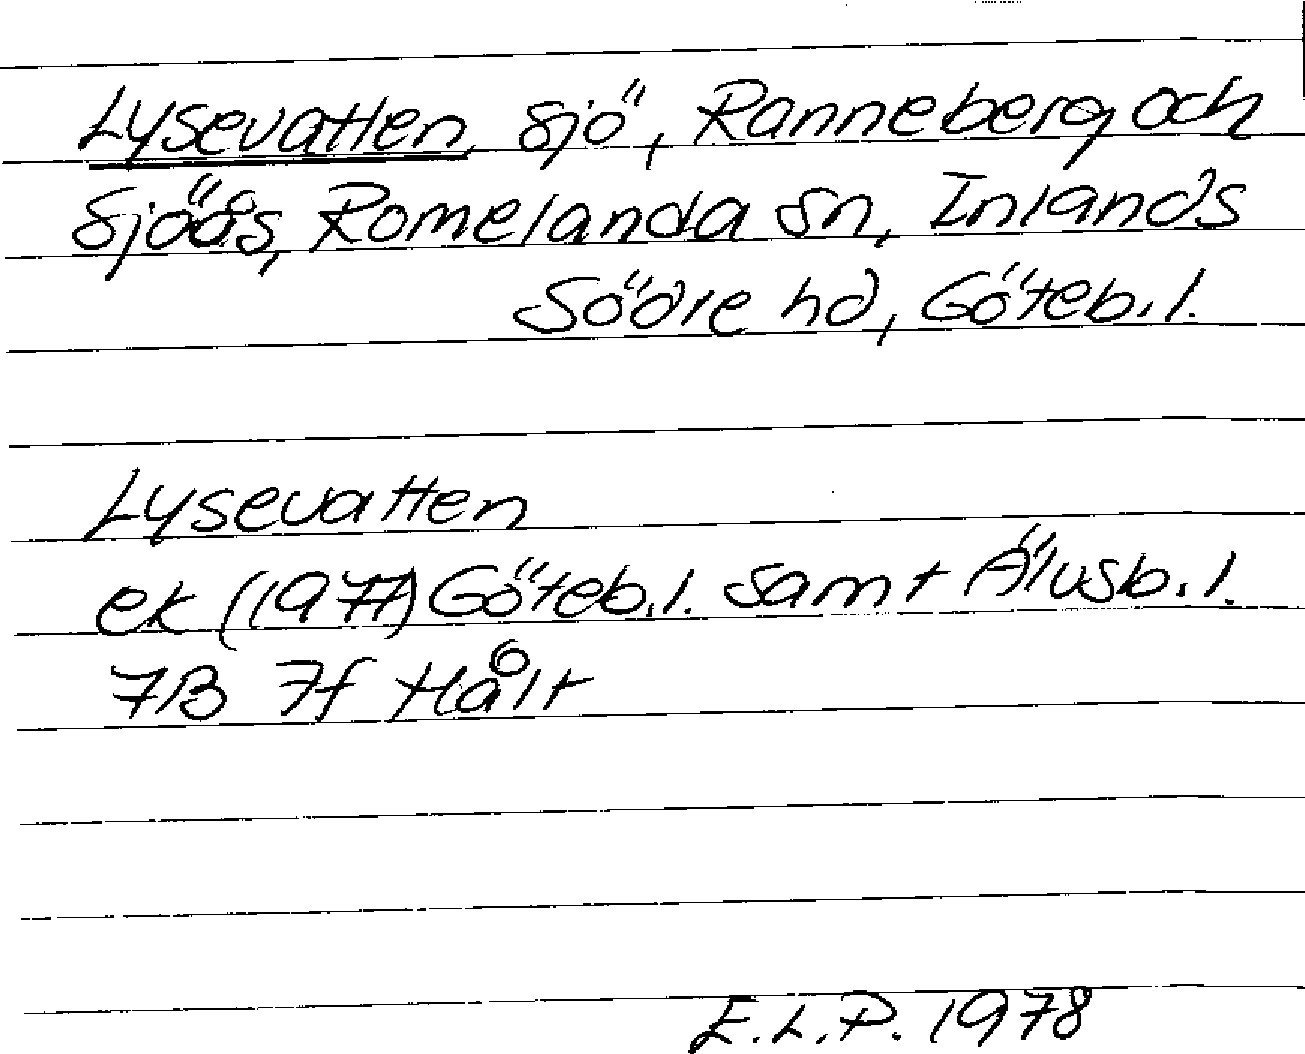 Lysevatten, sjö, Ranneberg och
Sjöås, Romelanda sn, Inlands
Södre hd, Göteb.l.
Lysevatten
ek (1977) Göteb.l. samt Älvsb.l.
7B 7f Hålt
E.L.P. 1978